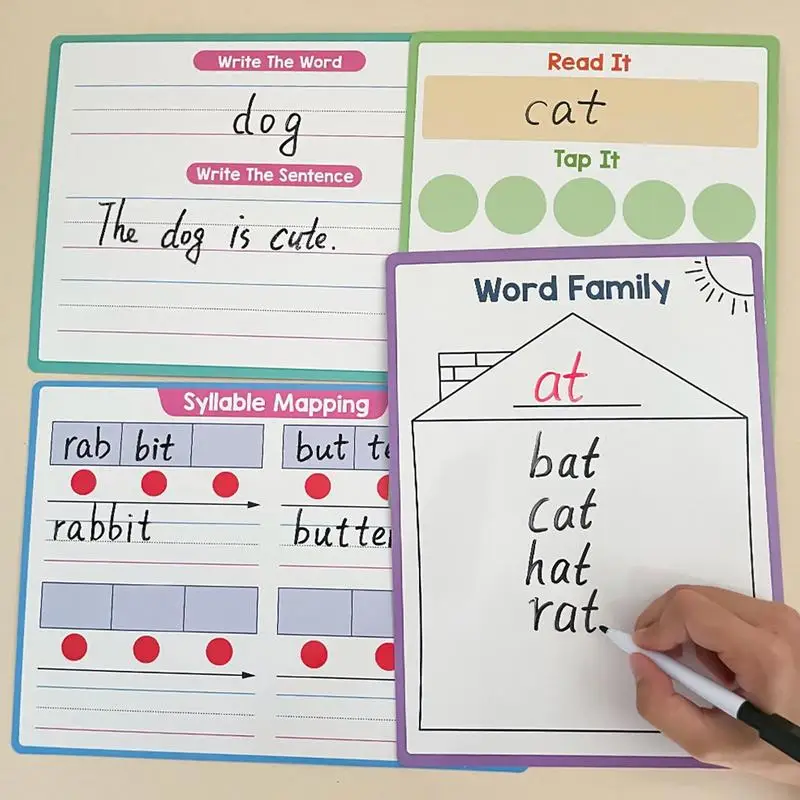 Write The Word
dog
Write The Sentence
The dog is cute.
Read It
cat
Tap It
Word Family
at
bat
cat
hat
rat
Syllable Mapping
rab bit
rabbit
but